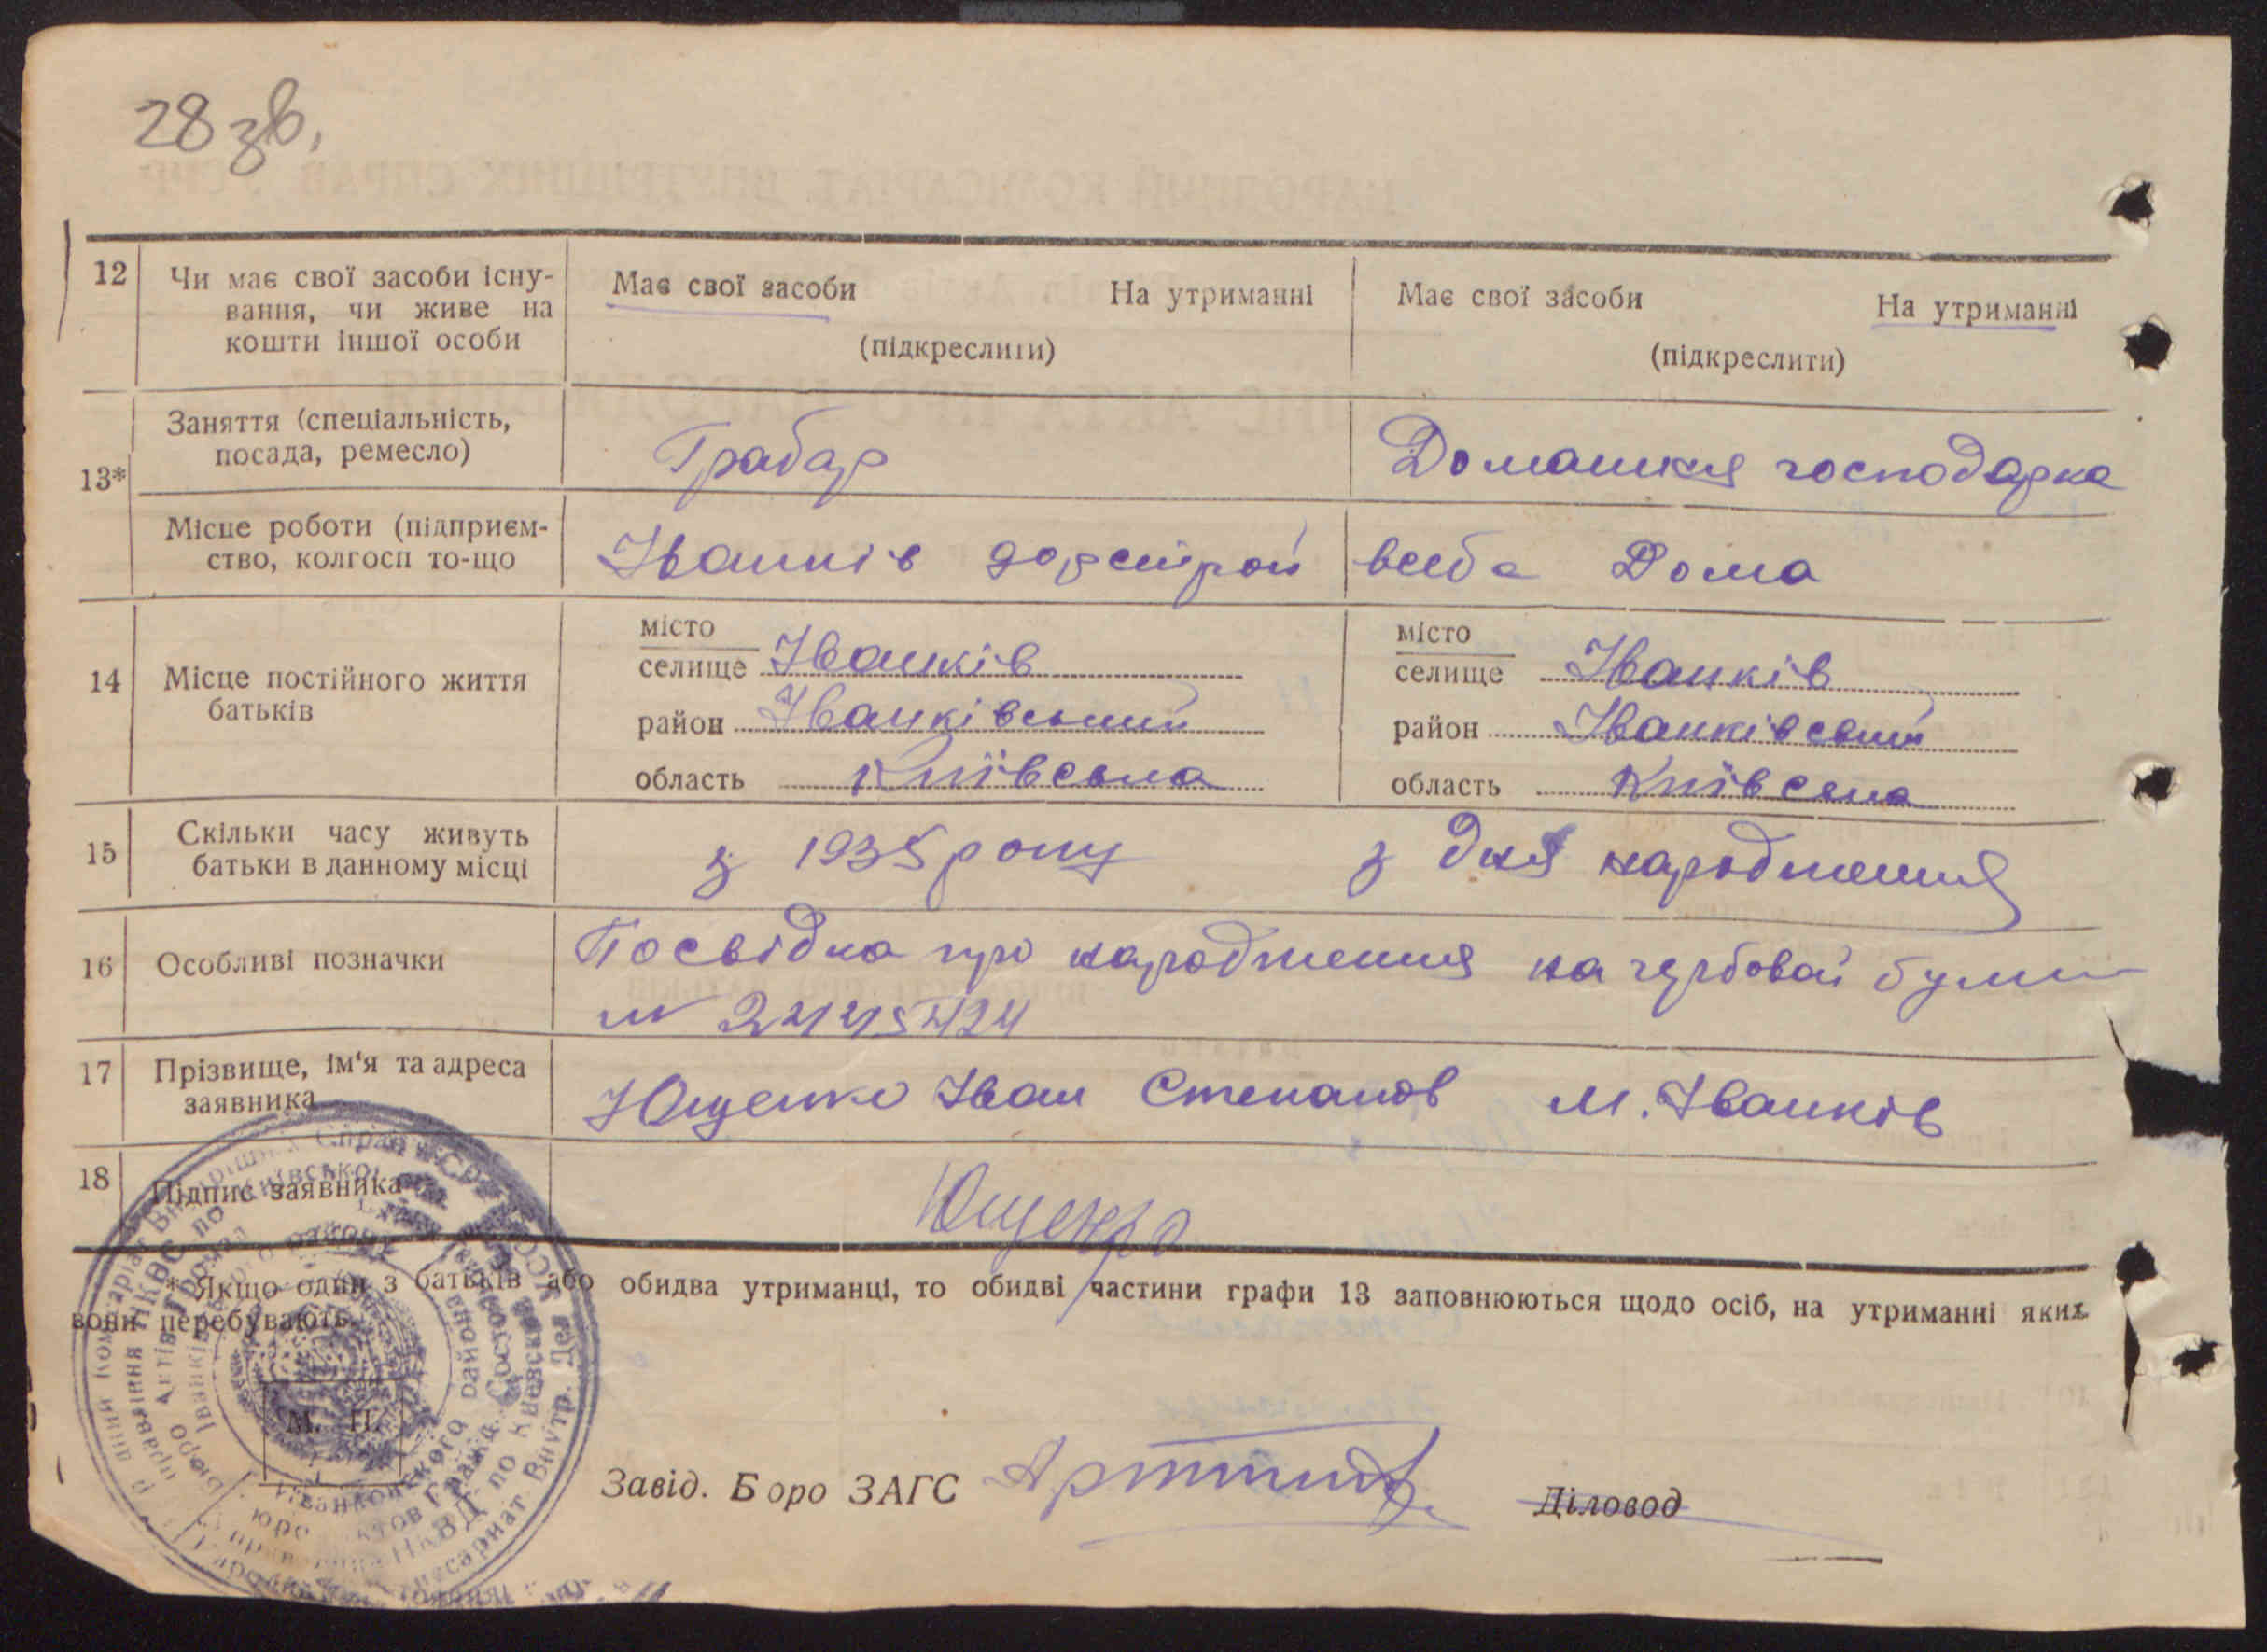 28 зв.
12 Чи має свої засоби існу-
вання, чи живе на
кошти іншої особи
Має свої засоби На утриманні
(підкреслити)
Має свої засоби На утриманні
(підкреслити)
13*
Заняття (спеціальність,
посада, ремесло)
Грабар
Домашня господарка
Місце роботи (підприєм-
ство, колгосп то-що
Іванків дорстрой
всеба Дома
14 Місце постійного життя
батьків
місто
селище Іванків
район Іванківський
область Київська
місто
селище Іванків
район Іванківський
область Київська
15 Скільки часу живуть
батьки в данному місці
з 1935 року
з дня народження
16 Особливі позначки
Посвідка про народження на гербовой
№
17 Прізвище, ім'я та адреса
заявника
Ющенко Іван Степанов м. Іванків
18 Підпис заявника
Ющенко
* Якщо один з батьків або обидва утриманці, то обидві частини графи 13 заповнюються щодо осіб, на утриманні яких
вони перебувають.
М. П.
Завід. Бюро ЗАГС
Діловод